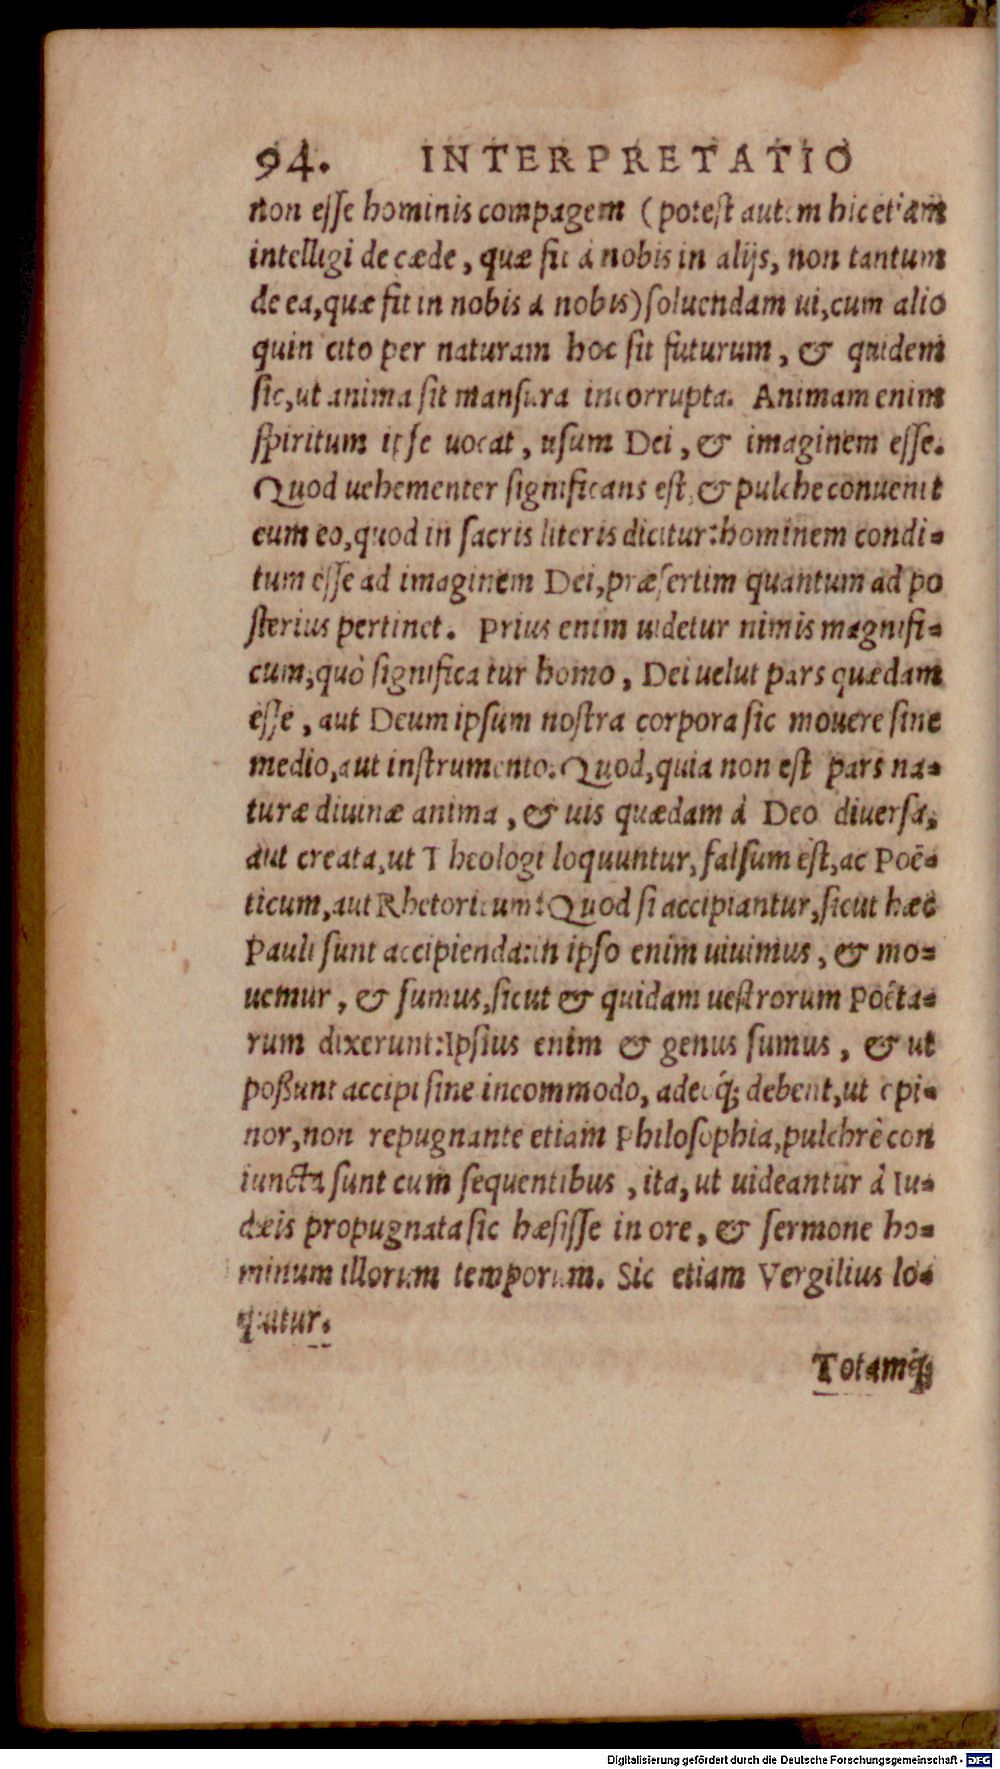 94. INTERPRETATIO
non esse hominis compagem (potest autem hic etiam
intelligi de cæde, quæ fit à nobis in alijs, non tantum
de ea, quæ fit in nobis a nobis) soluendam ui, cum alio
quin cito per naturam hoc sit futurum, & quidem
sic, ut anima sit mansura incorrupta. Animam enim
spiritum ipse uocat, usum Dei, & imaginem esse.
Quod uehementer significans est, & pulche conuenit
cum eo, quod in sacris literis dicitur: hominem condi-
tum esse ad imaginem Dei, præsertim quantum ad po
sterius pertinet. Prius enim uidetur nimis magnifi-
cum, quò significatur homo, Dei uelut pars quædam
esse, aut Deum ipsum nostra corpora sic mouere sine
medio, aut instrumento. Quod, quia non est pars na-
turæ diuinæ anima, & uis quædam à Deo diuersa,
aut creata, ut Theologi loquuntur, falsum est, ac Poë-
ticum, aut Rhetoricum: Quod si accipiantur, sicut hæc
Pauli sunt accipienda: in ipso enim uiuimus, & mo-
uemur, & sumus, sicut & quidam uestrorum Poëta-
rum dixerunt: Ipsius enim & genus sumus, & ut
poßunt accipi sine incommodo, adeoq́; debent, ut opi-
nor, non repugnante etiam Philosophia, pulchrè con
iuncta sunt cum sequentibus, ita, ut uideantur à Iu-
dæis propugnata sic hæsisse in ore, & sermone ho-
minum illorum temporum. Sic etiam Vergilius lo-
quitur.
Totamq́;
Digitalisierung gefördert durch die Deutsche Forschungsgemeinschaft - DFG